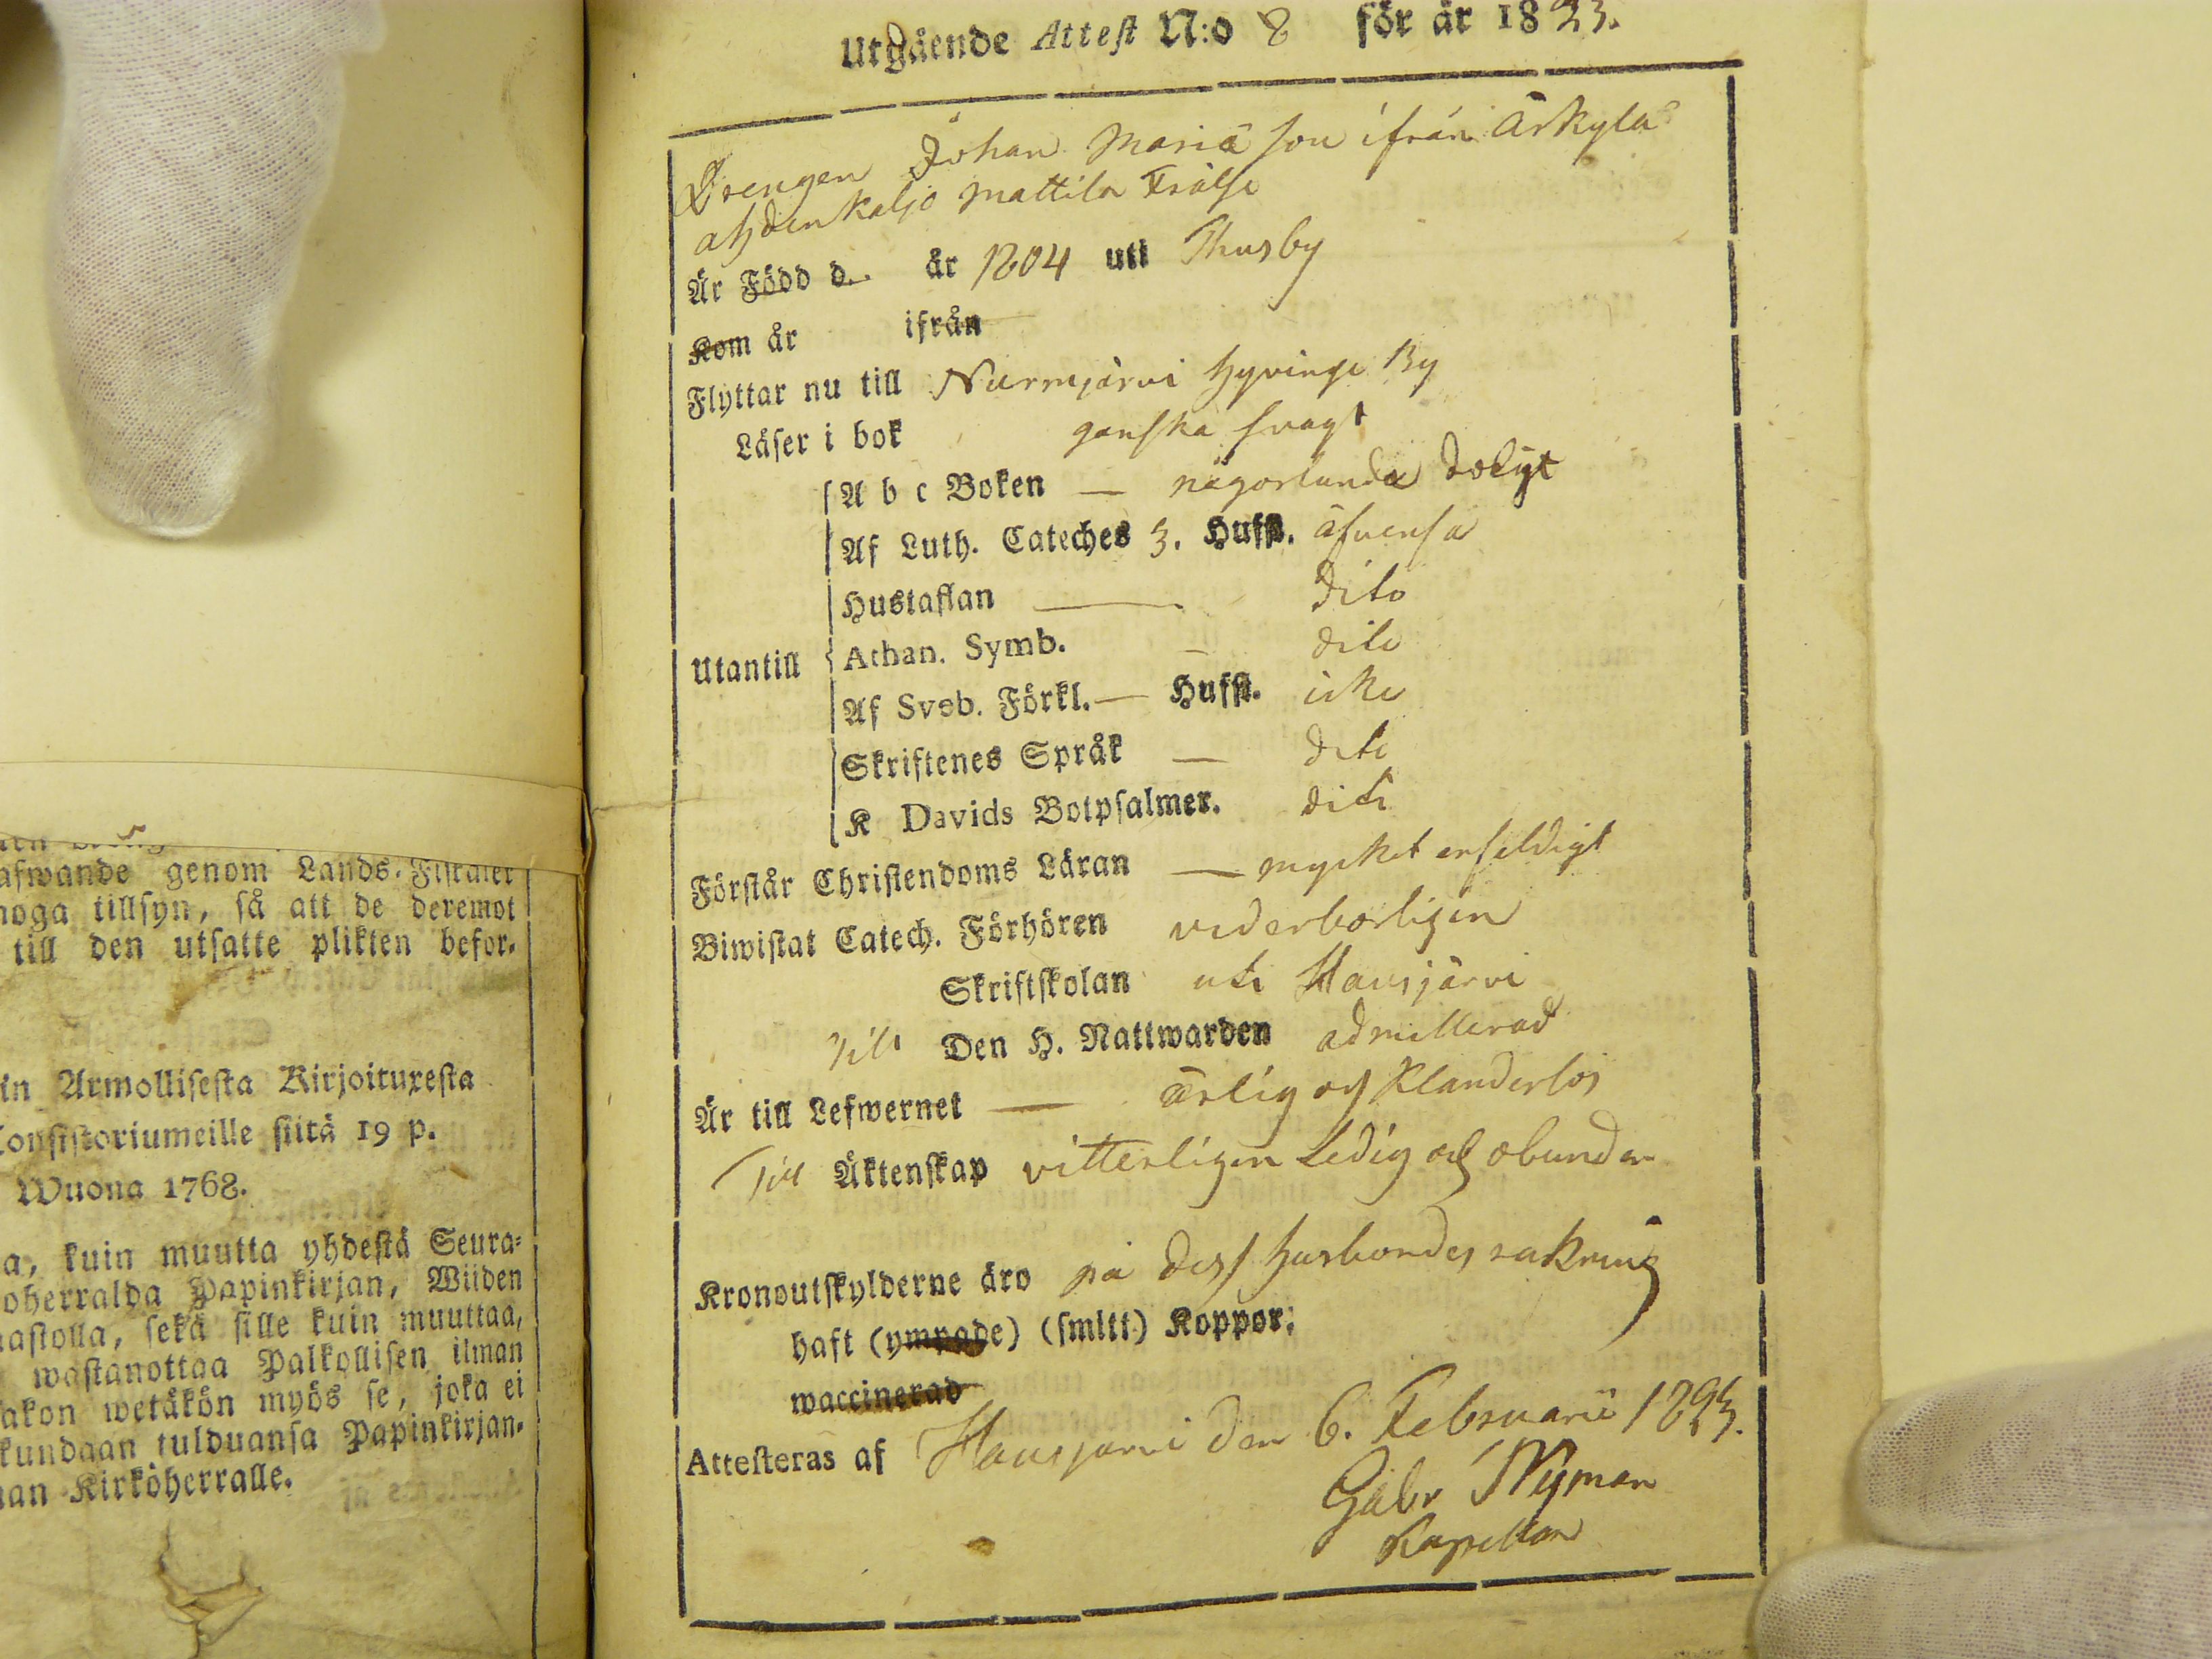 afwande genom Lands-Fiskaler
noga tillsyn, så att de deremot
till den utsatte plikten befor-
in Armollisesta Kirjoituxesta
Consistoriumeille siitä 19 p.
Wuona 1768.
a, kuin muutta yhdestä Seura-
oherralda Papinkirjan, Wiiden
astolla, sekä sille kuin muuttaa,
wastanottaa Palkollisen ilman
akon wetäkön myös se, joka ei
kundaan tulduansa Papinkirjan-
an Kirkoherralle.
Utgående Attest N:o 8 för år 1823.
Drengen Johan Mariä son ifrån Arkylä
ahdenkaljo Mattila Frälse
Är Född d. år 1804 uti Thusby
Kom år ifrån
Flyttar nu till Nurmjärvi Hyvinge By
Läser i bok ganska svagt
A b c Boken — någorlunda dosigt
Af Luth. Cateches 3. Hufst. äfvenså
Hustaflan — dito
Utantill Athan. Symb. — dito
Af Sveb. Förkl. — Hufst. icke
Skriftenes Språk — dito
K Davids Botpsalmer. dito
Förstår Christendoms Läran — mycket enfeldigt
Biwistat Catech. Förhören vederbörligen
Skriftskolan uti Hausjärvi
Till Den H. Nattwarden admitterad
Är till Lefwernet — ärlig och klanderlös
Till Äktenskap vitterligen Ledig och obunden
Kronoutskylderne äro på dess husbondes räkning
haft (ympade) (smitt) Koppor;
waccinerad
Attesteras af Hausjärvi den 6. Februarii 1823.
Gabr Nyman
Kapellan